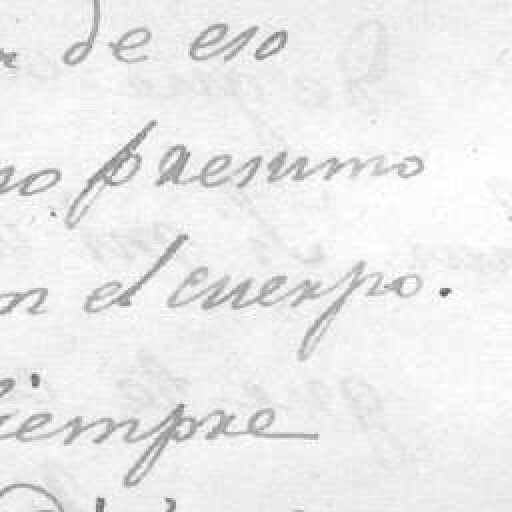 de eso
no presumo
en el cuerpo.
siempre